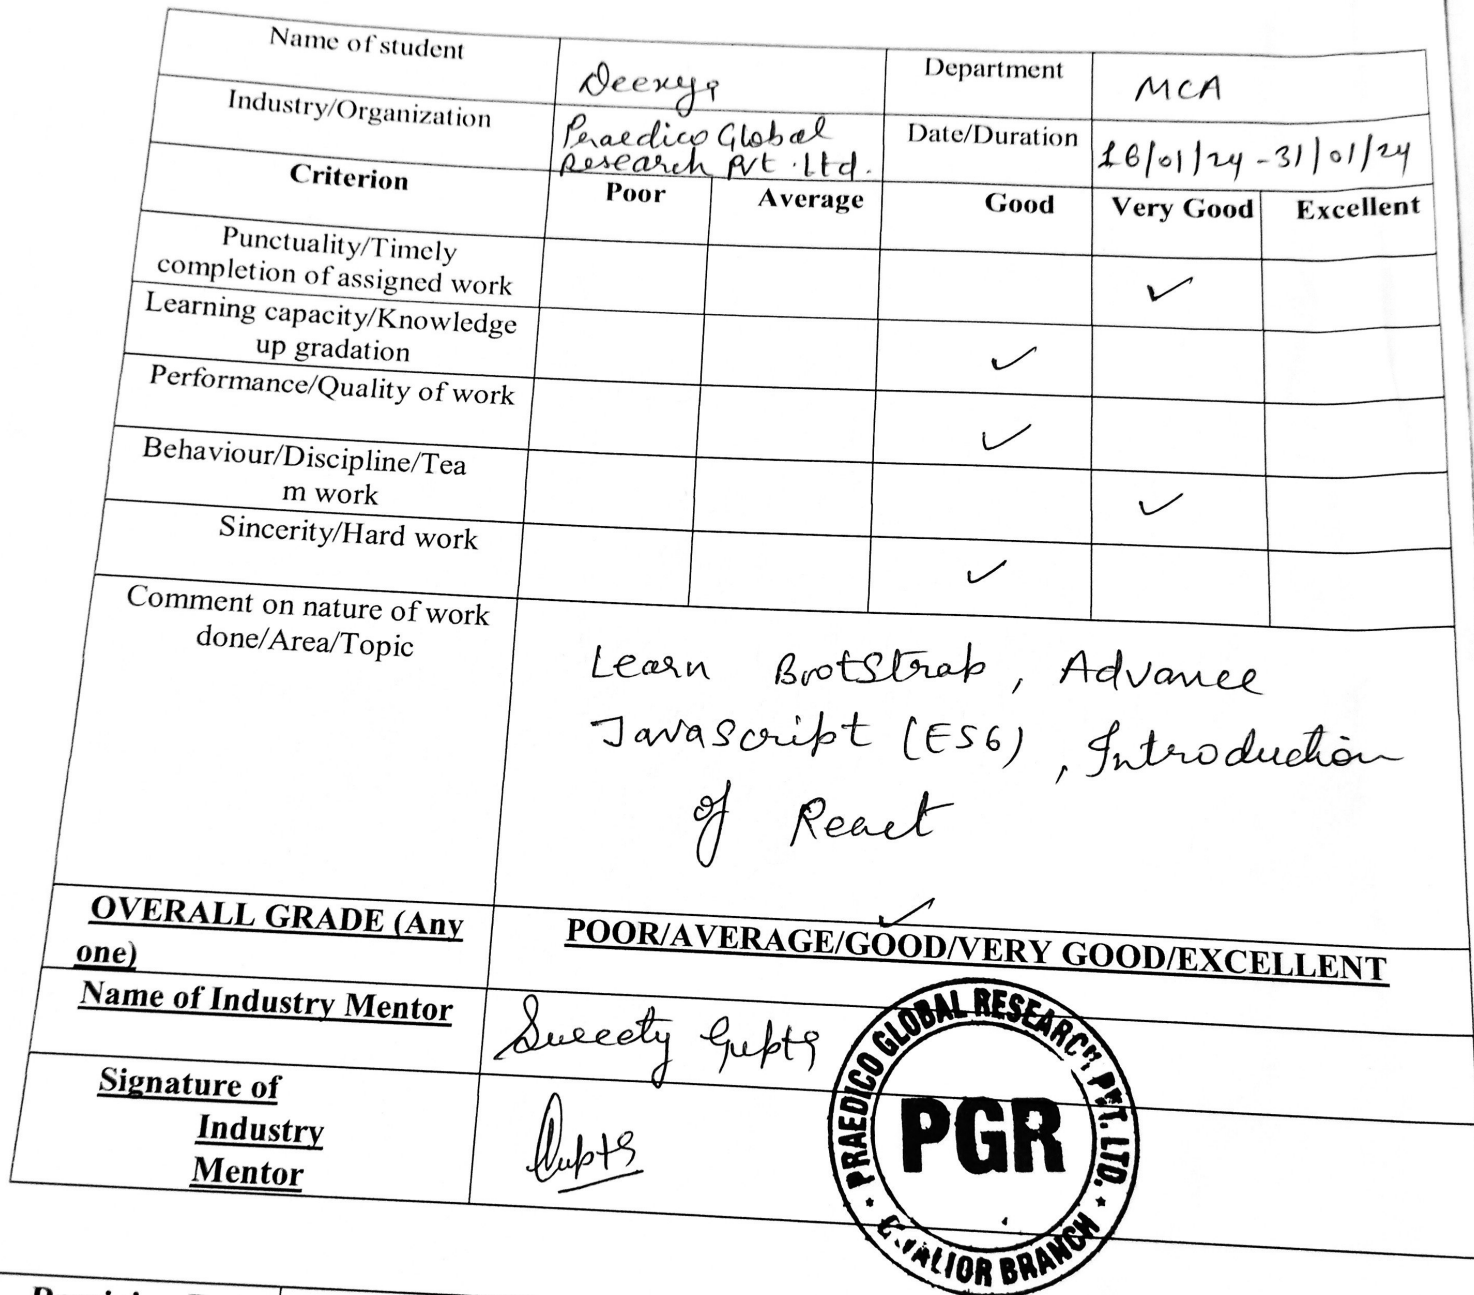 Name of student
Department
MCA
Industry/Organization
Praedico Global
Research Pvt. Ltd.
Date/Duration
16/01/24 - 31/01/24
Criterion Poor Average Good Very Good Excellent
Punctuality/Timely
completion of assigned work ✓
Learning capacity/Knowledge
up gradation ✓
Performance/Quality of work ✓
Behaviour/Discipline/Tea
m work ✓
Sincerity/Hard work ✓
Comment on nature of work
done/Area/Topic
Learn BootStrap, Advance
JavaScript (ES6), Introduction
of React
OVERALL GRADE (Any
one)
✓
POOR/AVERAGE/GOOD/VERY GOOD/EXCELLENT
Name of Industry Mentor
Sweety Gupta
Signature of
Industry
Mentor
Gupta
PRAEDICO GLOBAL RESEARCH PVT. LTD.
PGR
GWALIOR BRANCH